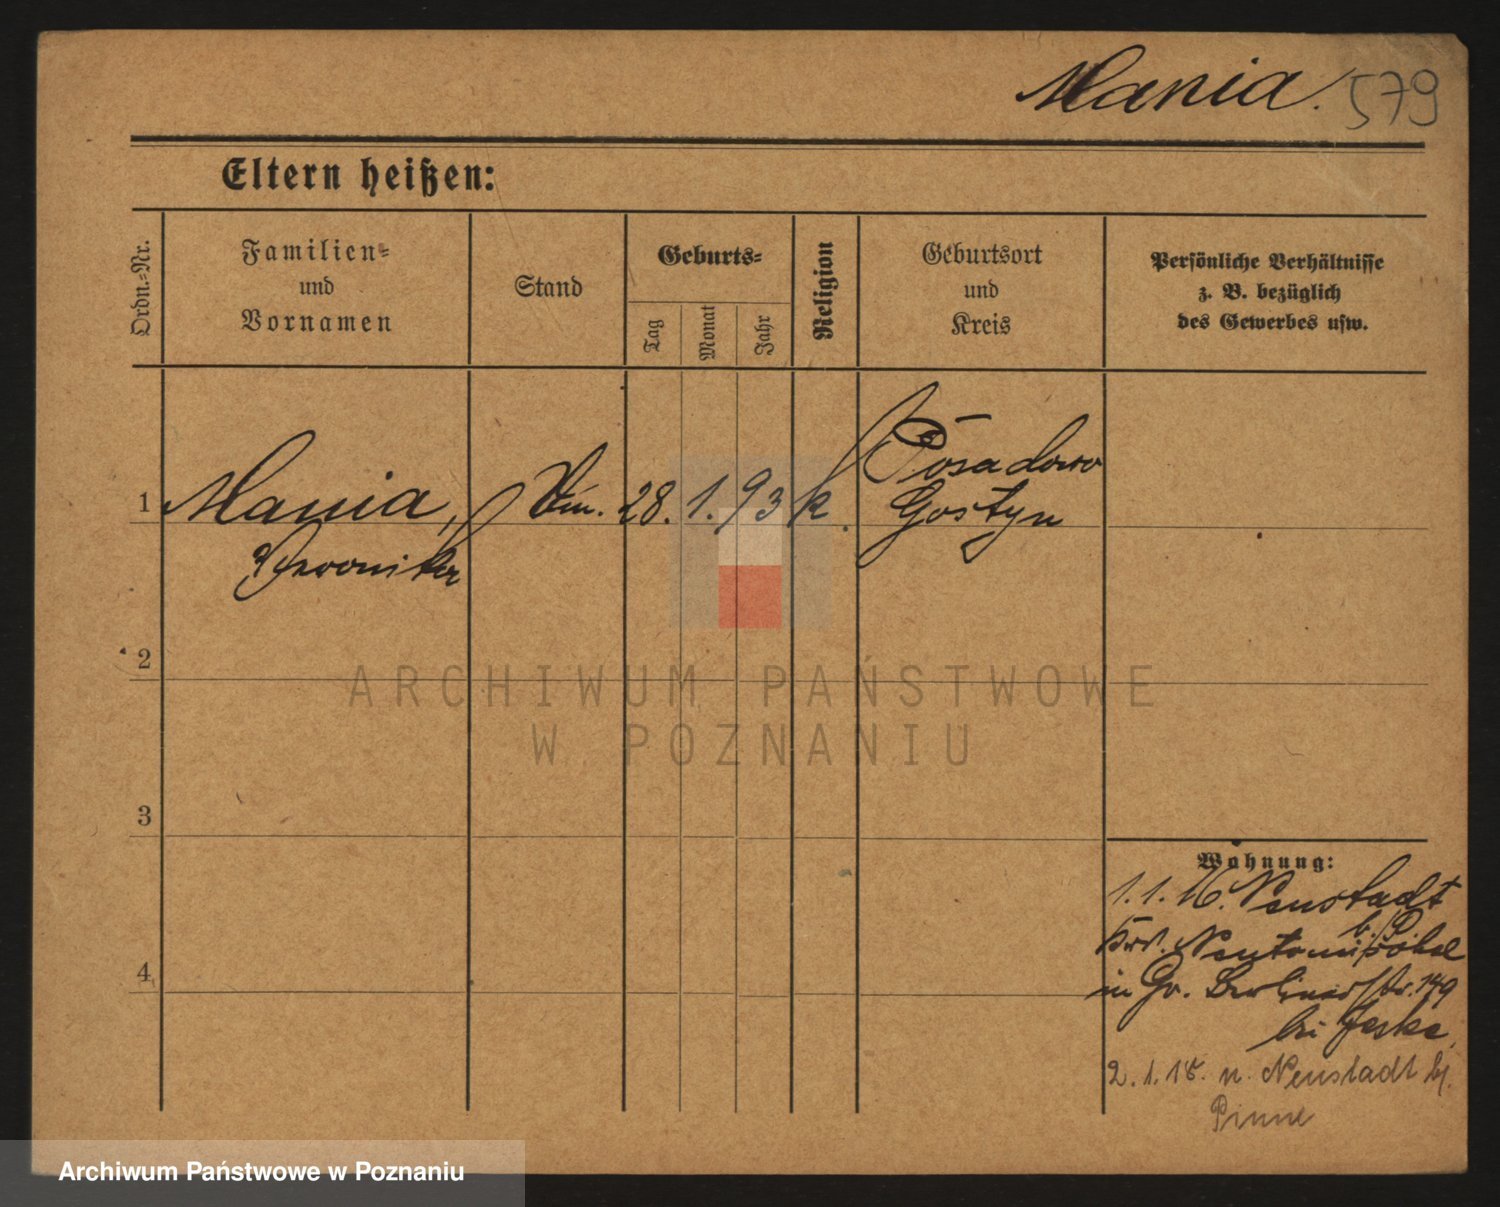 Mania. 579
Eltern heißen:
Ordn.-Nr.
Familien-
und
Vornamen
Stand
Geburts-
Tag
Monat
Jahr
Religion
Geburtsort
und
Kreis
Persönliche Verhältnisse
z. B. bezüglich
des Gewerbes usw.
1 Mania, 28. 1. 93 k. Posadowo
Gostyn
2
3
4
Wohnung:
1. 1. 16. Neustadt
b./P.
Neutomischel
in Berlinerstr. 149
bei Jeske
2. 1. 18. n. Neustadt b.
Pinne
ARCHIWUM PAŃSTWOWE
W POZNANIU
Archiwum Państwowe w Poznaniu